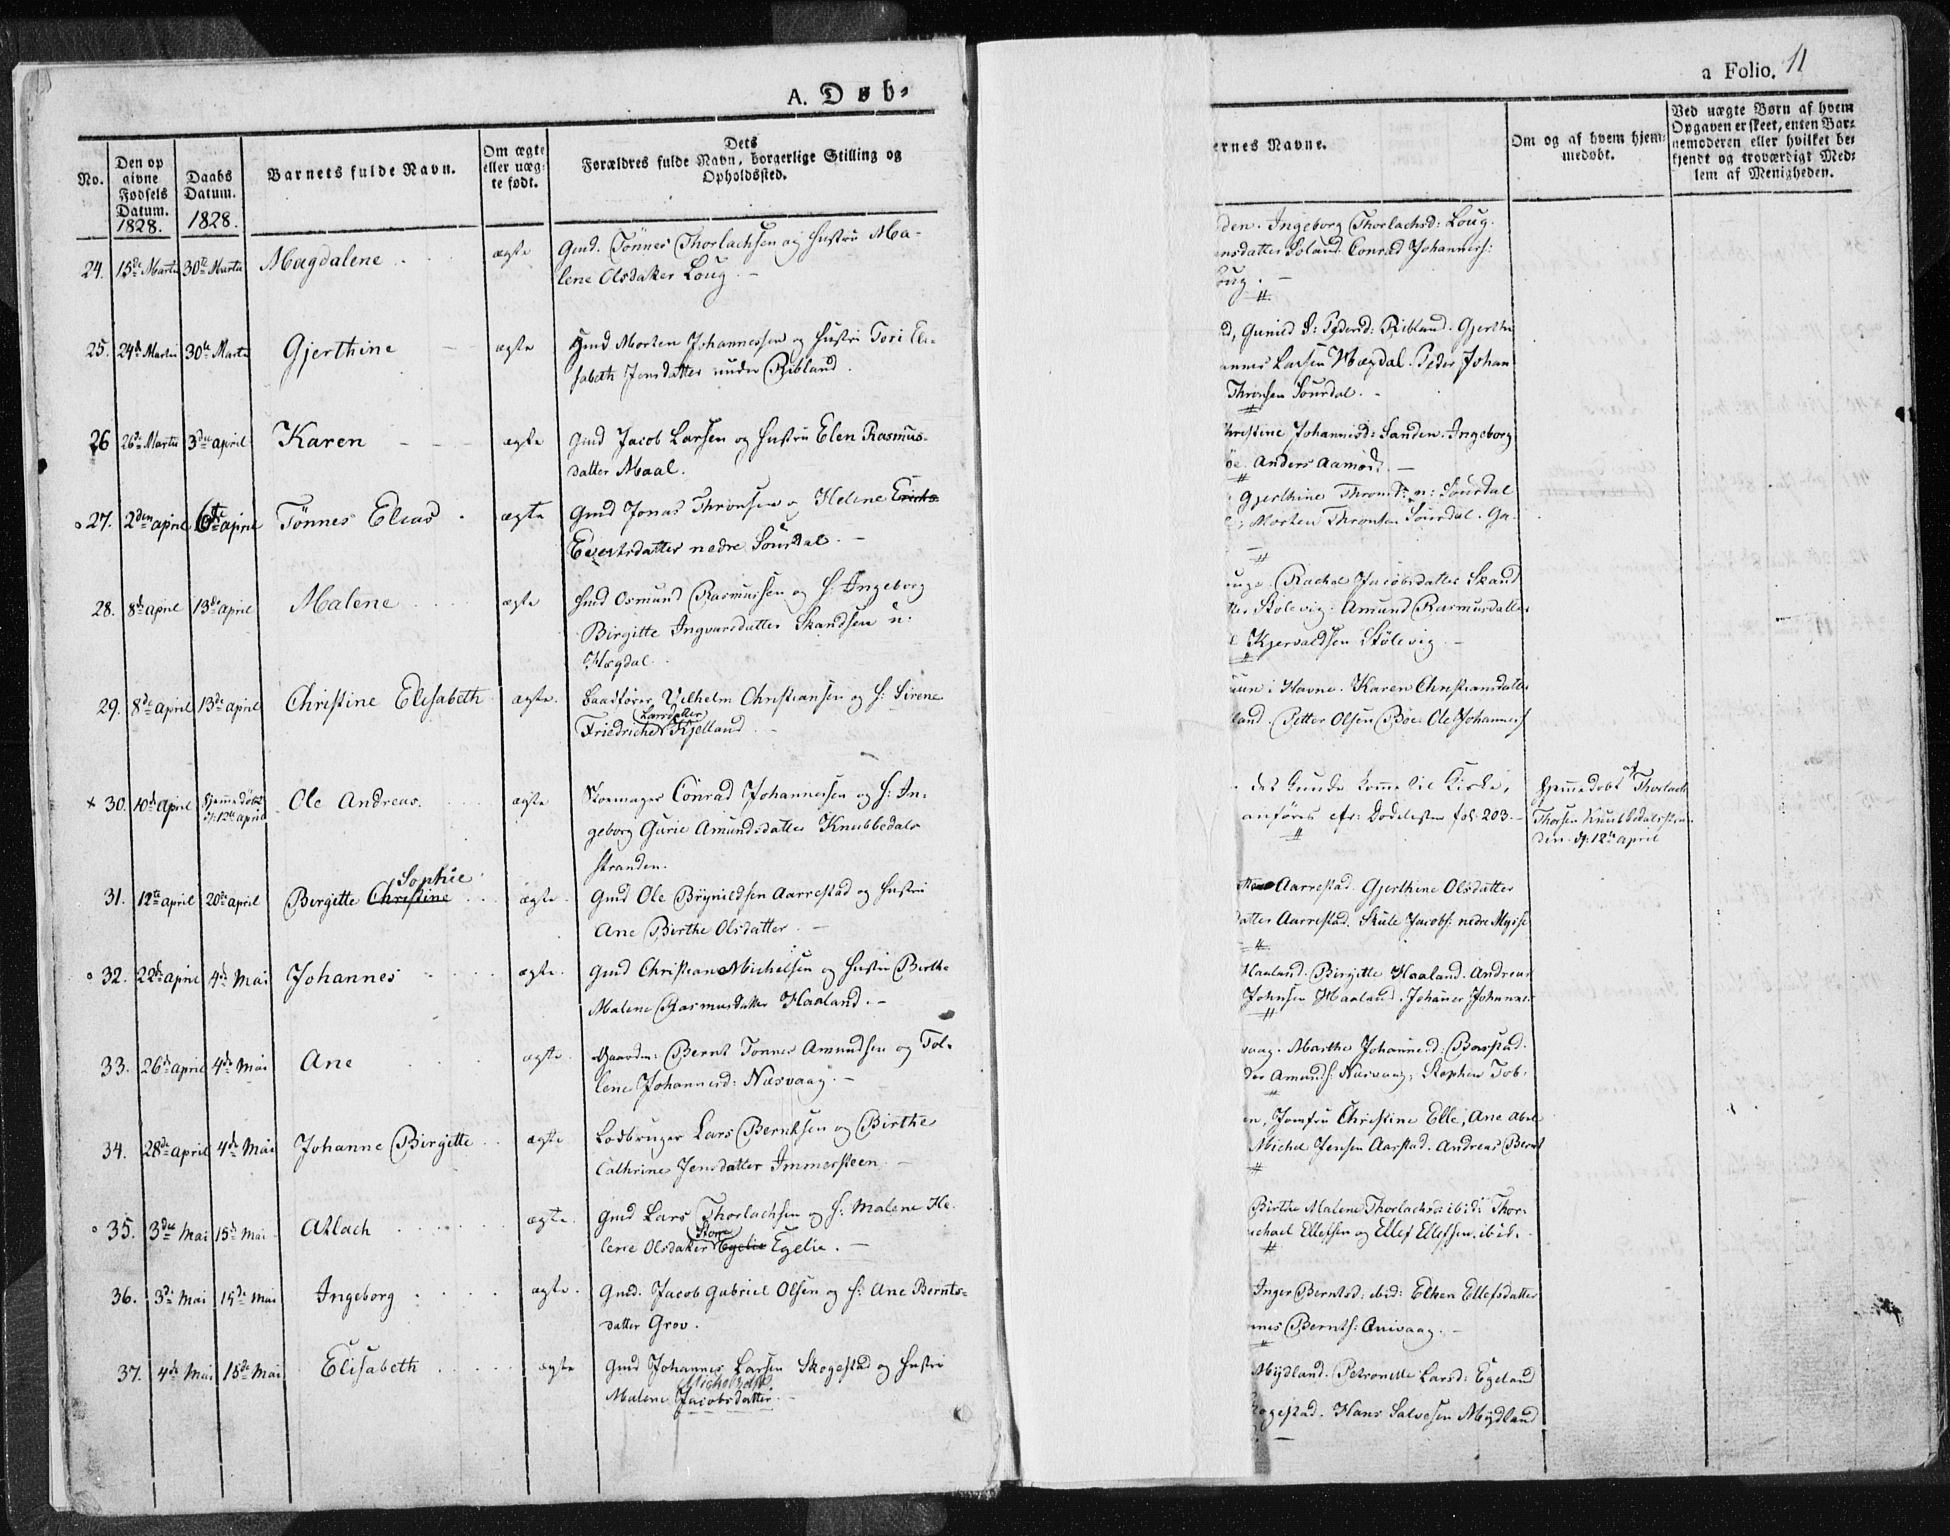 A. Døb-
No.
Den op
givne
Fødsels
Datum.
1828.
Daabs
Datum.
1828.
Barnets fulde Navn.
Om ægte
eller uæg-
te født.
Dets
Forældres fulde Navn, borgerlige Stilling og
Opholdssted.
24. 15de Martii 30te Martii Magdalene ægte Gmd. Tönnes Thorlachsen og Hustru Ma-
lene Olsdatter Loug.
25. 24de Martii 30te Martii Gjerthine ægte Gmd Morten Johannessen og Hustru Tori Eli-
sabeth Jensdatter under Ribland.
26 26de Martii 3die april Karen ægte Gmd Jacob Larsen og Hustru Elen Rasmus-
datter Maal.
27. 2den april 6te april Tönnes Elias ægte Gmd Jonas Thronsen og Helene Erichs
Evertsdatter nedre Sourdal.
28. 8de april 13de april Malene ægte Gmd Osmund Rasmussen og H: Ingeborg
Birgitte Ingvarsdatter Skandsen u:
Hægdal.
29. 8de april 13de april Christine Elisabeth ægte. Baadfører Vilhelm Christiansen og H: Sirene
Larsdatter
Friedriche Kjelland
x 30. 10de April Hjemmedøbt
d: 12te april Ole Andreas. ægte Skomager Conrad Johannessen og H: In-
geborg Gurie Amundsdatter Knubbedals-
stranden.
Sophie
31. 12te april 20de april Birgitte Christine ægte. Gmd Ole Brynildsen Aarrestad og Hustru
Ane Birthe Olsdatter.
32. 22de april 4de Mai Johannes ægte. Gmd Christian Michelsen og Hustru Birthe
Malene Rasmusdatter Haaland.
33. 26de april 4de Mai Ane ægte. Gaardm: Bernt Tønnes Amundsen og Tol-
lene Johannesd: Næsvaag.
34. 28de april 4de Mai Johanne Birgitte ægte Lodbruger Lars Berntsen og Birthe
Cathrine Jensdatter Immersteen.
35. 3die Mai 15de Mai Atlach ægte. Gmd Lars Thorlachsen og H: Malene He-
Store
lene Olsdatter Egelie Egelie.
36. 3die Mai 15de Mai Ingeborg ægte. Gmd. Jacob Gabriel Olsen og H: Ane Bernts-
datter Grov.
37. 4de Mai 15de Mai Elisabeth ægte Gmd Johannes Larsen Skogestad og Hustru
Michelsdtr
Malene Jacobsdatter
a Folio. 11
ernes Navne.
Om og af hvem hjem-
medøbt.
Ved uægte Børn af hvem
Opgaven er skeet, enten Bar-
nemoderen eller hvilket be-
kjendt og troværdigt Med-
lem af Menigheden.
den. Ingeborg Thorlachsd: Loug.
ensdatter Soland. Conrad Johanness:
oug.
d, Gunild S: Pedersd: Ribland. Gjerthi
annes Larsen Hægdal. Peder Johan
Thronsen Sourdal.
hristine Johannisd: Sanden. Ingeborg
Anders Aamod.
Gjerthine Thronsd: n: Sourdal
Morten Thronsen Sourdal. Ga-
Rachel Jacobsdatter Skand
Stølevig. Amund Rasmusdatter
Kjervaldsen Stølevig.
i Havne. Karen Christiansdatter
land. Petter Olsen Böe. Ole Johanness
det kunde komme til Kirke,
anføres cfr: Dødelisten fol: 203.
Hjemmedøbt af Thorlach
Thorsen Knubbedalsstran-
den d: 12te april
Aarrestad. Gjerthine Olsdatter
datter Aarrestad. Skule Jacobs: nedre Mysse
Haaland. Birgitte Haaland. Andreas
Johnsen Haaland. Johannes Johannes
vaag. Marthe Johannesd: Barstad.
der Amunds: Næsvaag, Stephen Tob-
en, Jomfru Christine Elle, Ane Abel
Michel Jensen Aarstad. Andreas Bernt
Birthe Malene Thorlachsd: ibid: Thor-
ichael Ellefsen og Ellef Ellefsen. ibid.
Inger Berntsd: ibid: Elken Ellefsdatter
nnes Bernts: Anivaag.
Mydland. Petronelle Larsd: Egeland
kogestad. Hans Salvesen Mydland